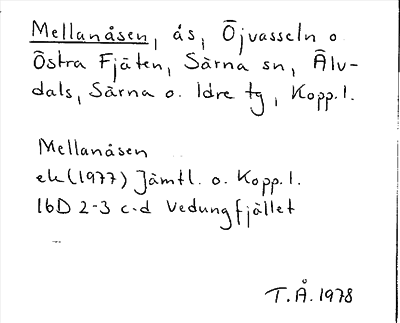 Mellanåsen, ås, Öjvasseln o.
Östra Fjäten, Särna sn, Älv-
dals, Särna o. Idre tg, Kopp. l.
Mellanåsen
ek (1977) Jämtl. o. Kopp. l.
16D 2-3 c-d Vedungfjället
T.Å. 1978